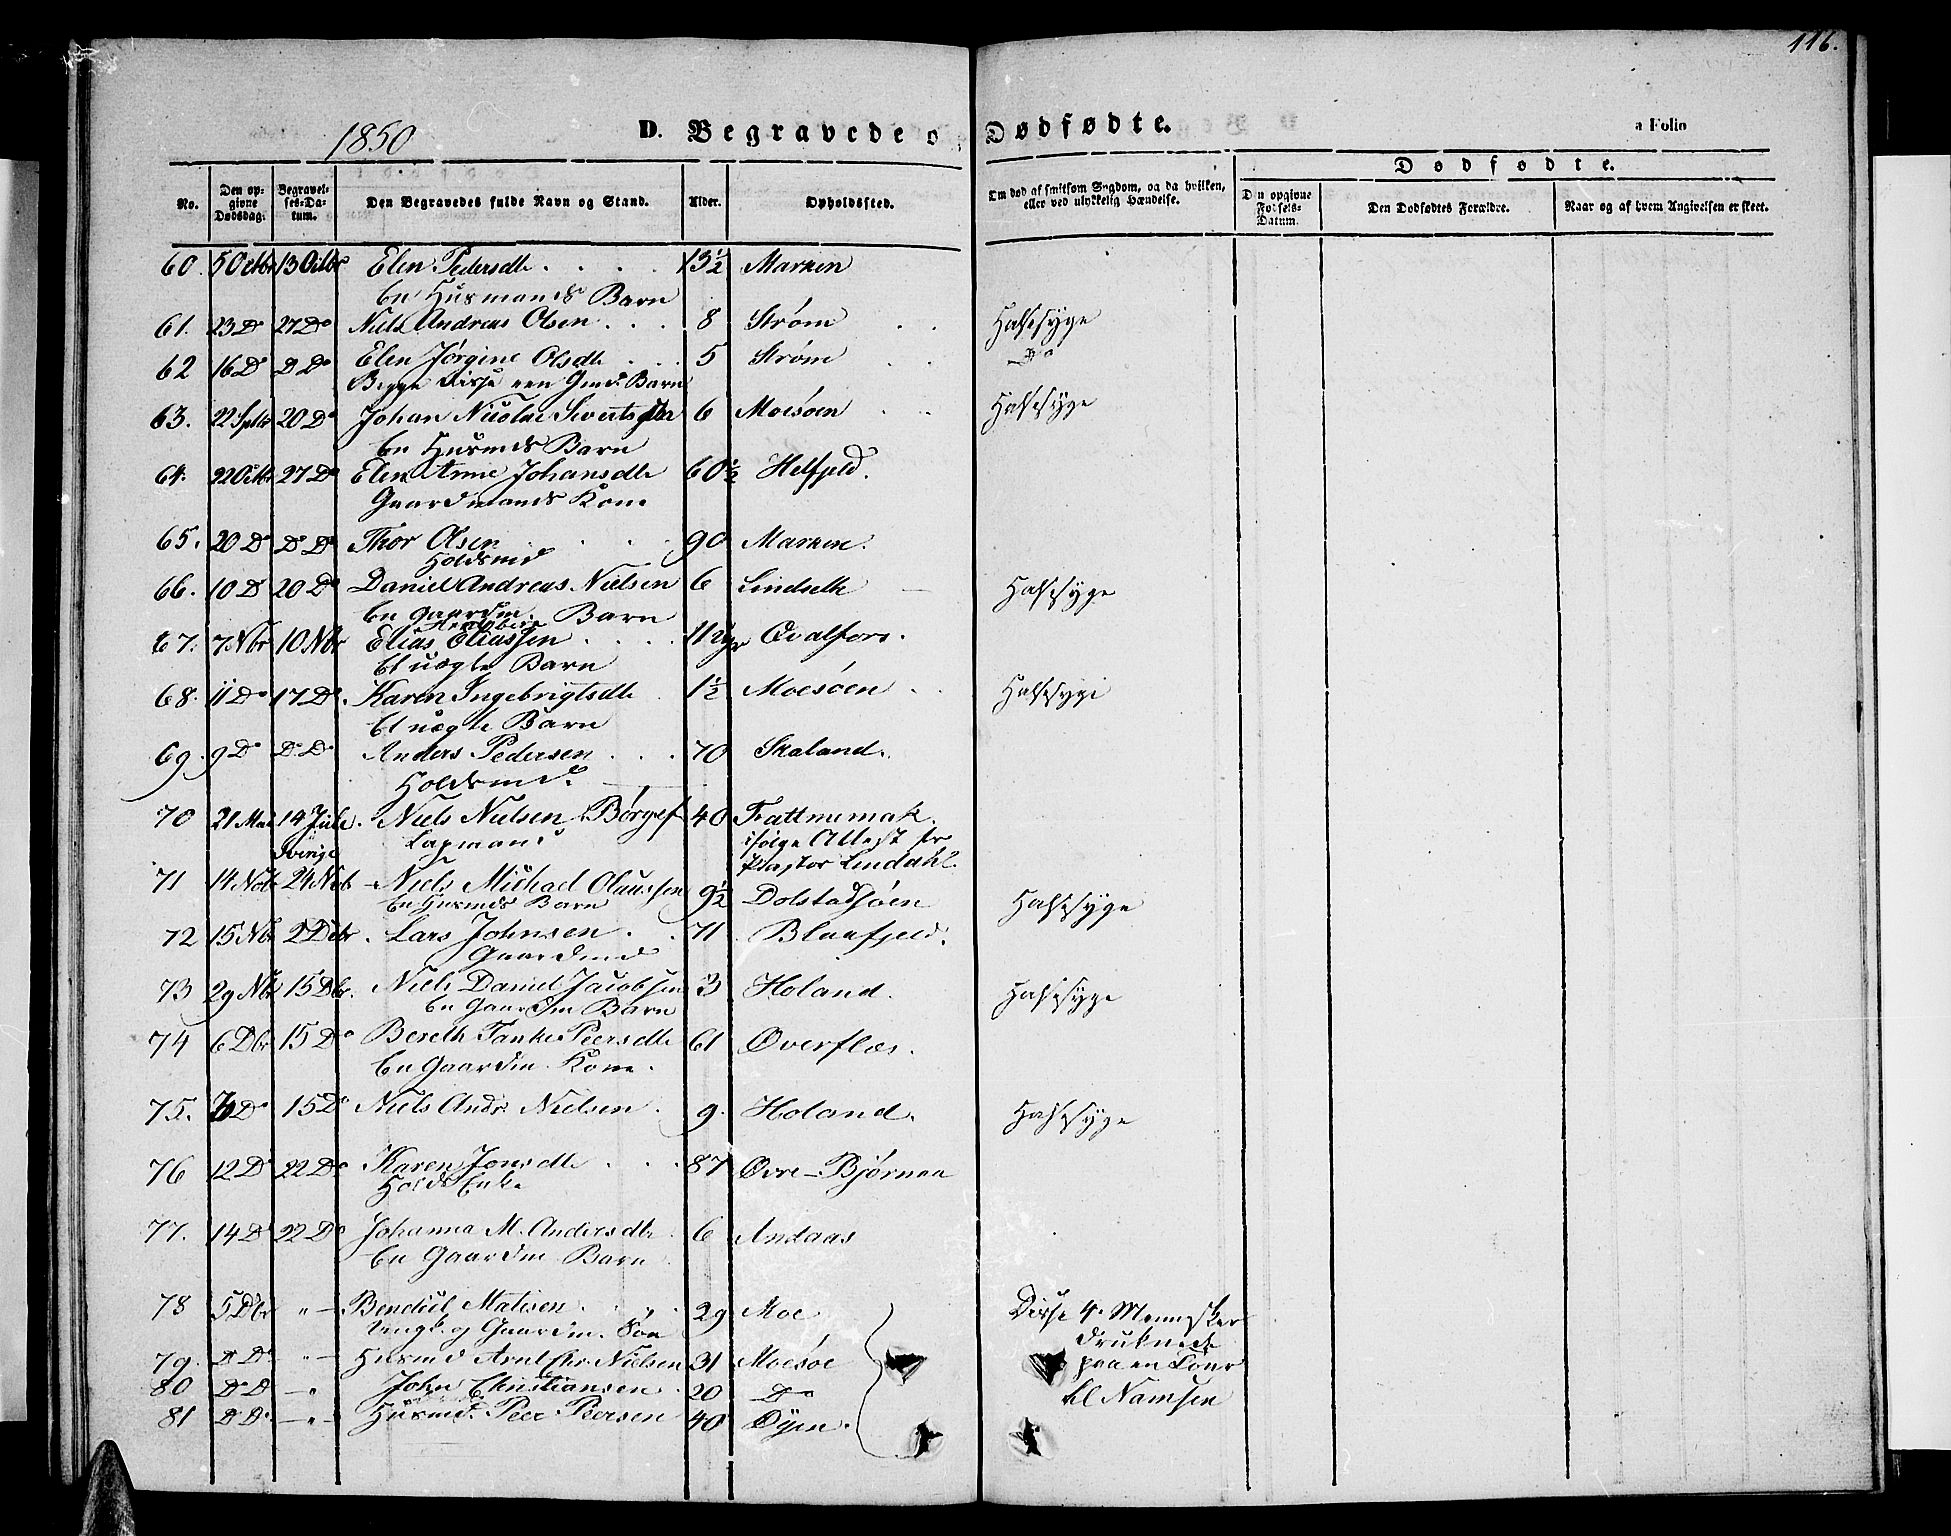 116.
1850
D. Begravede o
Dødfødte.
a Folio
No.
Den opgivne Dødsdag.
Begravelses-Datum.
Den Begravedes fulde Navn og Stand.
Alder.
Opholdssted.
Om død af smitsom Sygdom, og da hvilken, eller ved ulykkelig Hændelse.
Dødfødte.
Den opgivne Fødsels-Datum.
Den Dødfødtes Forældre.
Naar og af hvem Angivelsen er skeet.
60. 5 Octbr 13 Octbr Elen Pedersdtr 13½ Marken
En Husmands Barn
61. 23 Do 27 Do Niels Andreas Olsen 8 Strøm Halssyge
62 16 D D Do Elen Jørgine Olsdtr 5 Strøm Do
Begge disse een Gmds Barn
63. 22 Septbr 20 Do Johan Nicolai Sivertsen 6 Moesøen Halssyge
En Husmds Barn
64. 22 Octbr 27 Do Elen Anne Johansdtr 60½ Helfjeld.
Gaardmands Kone
65. 20 Do Do Do Thor Olsen 90 Marken.
Holdsmd
66. 10 D 20 Do Daniel Andreas Nielsen 6 Lindseth Halssyge
En Gaardm. Barn
67. 7 Nbr 10 Nbr Elias Eliassen 11 Uger Qvalfors.
Et uægte Barn
68. 11 Do 17 Do Karen Ingebrigtsdtr 1½ Moesøen Halssyge
Et uægte Barn
69. 9 Do Do Do Anders Pedersen 70 Skaland.
Holdsmd.
70 21 Mai 14 Juli Niels Nielsen Børgef 40 Fattmomak.
Sverige Lapmand ifølge Attest fr
Pastor Lindahl.
71 14 Nvbr 24 Nvb Niels Michael Olaussen 9½ Dolstadsøen Halssyge
En Husmds Barn
72 15 Nbr 2 Debr Lars Johnsen 71 Blaafjeld.
Gaardmd
73 29 Nbr 15 Dbr. Niels Daniel Jacobsen 3 Holand. Halssyge
En Gaardm Barn
74 6 Dbr 15 Do Bereth Tanke Peersdtr 61 Øverflæs.
En Gaardm Kone.
75. Do 15 Do Niels Andr. Nielsen 9. Holand. Halssyge
76 12 D 22 Do Karen Jonsdtr 87 Øvre-Bjørnaa
Holds Enke
77. 14 D 22 Do Johanna M. Andersdtr 6 Andaas
En Gaardm Barn
78 5 Dbr " Bendict Matisen 29 Moe Disse 4. Mennesker
Ungk. og Gaardm. Søn druknede
79. D D " Husmd Arnt Chr. Nielsen 31 Moesøe paa en Tour
80 D D " John Christiansen 20 Do til Namsen
81 D D " Husmd. Peer Peersen 40 Øyen.